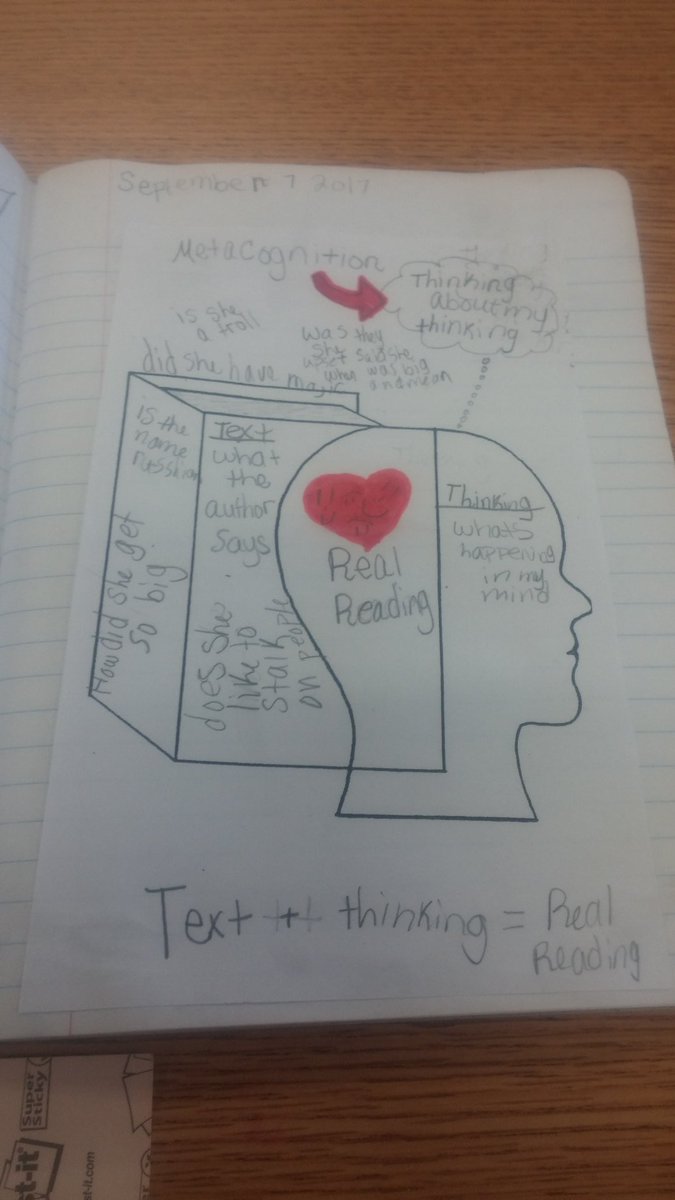 September 7 2017
MetaCognition
Thinking
about my
thinking
is she
a troll
was they
she
upset said she
when was big
and mean
did she have magic
is the
name
russhian
Text
what
the
author
says
How did she get
so big
does she
like to
stalk
on people
Real
Reading
Thinking
whats
happening
in my
mind
Text + thinking = Real
Reading
Super
Sticky
st-it